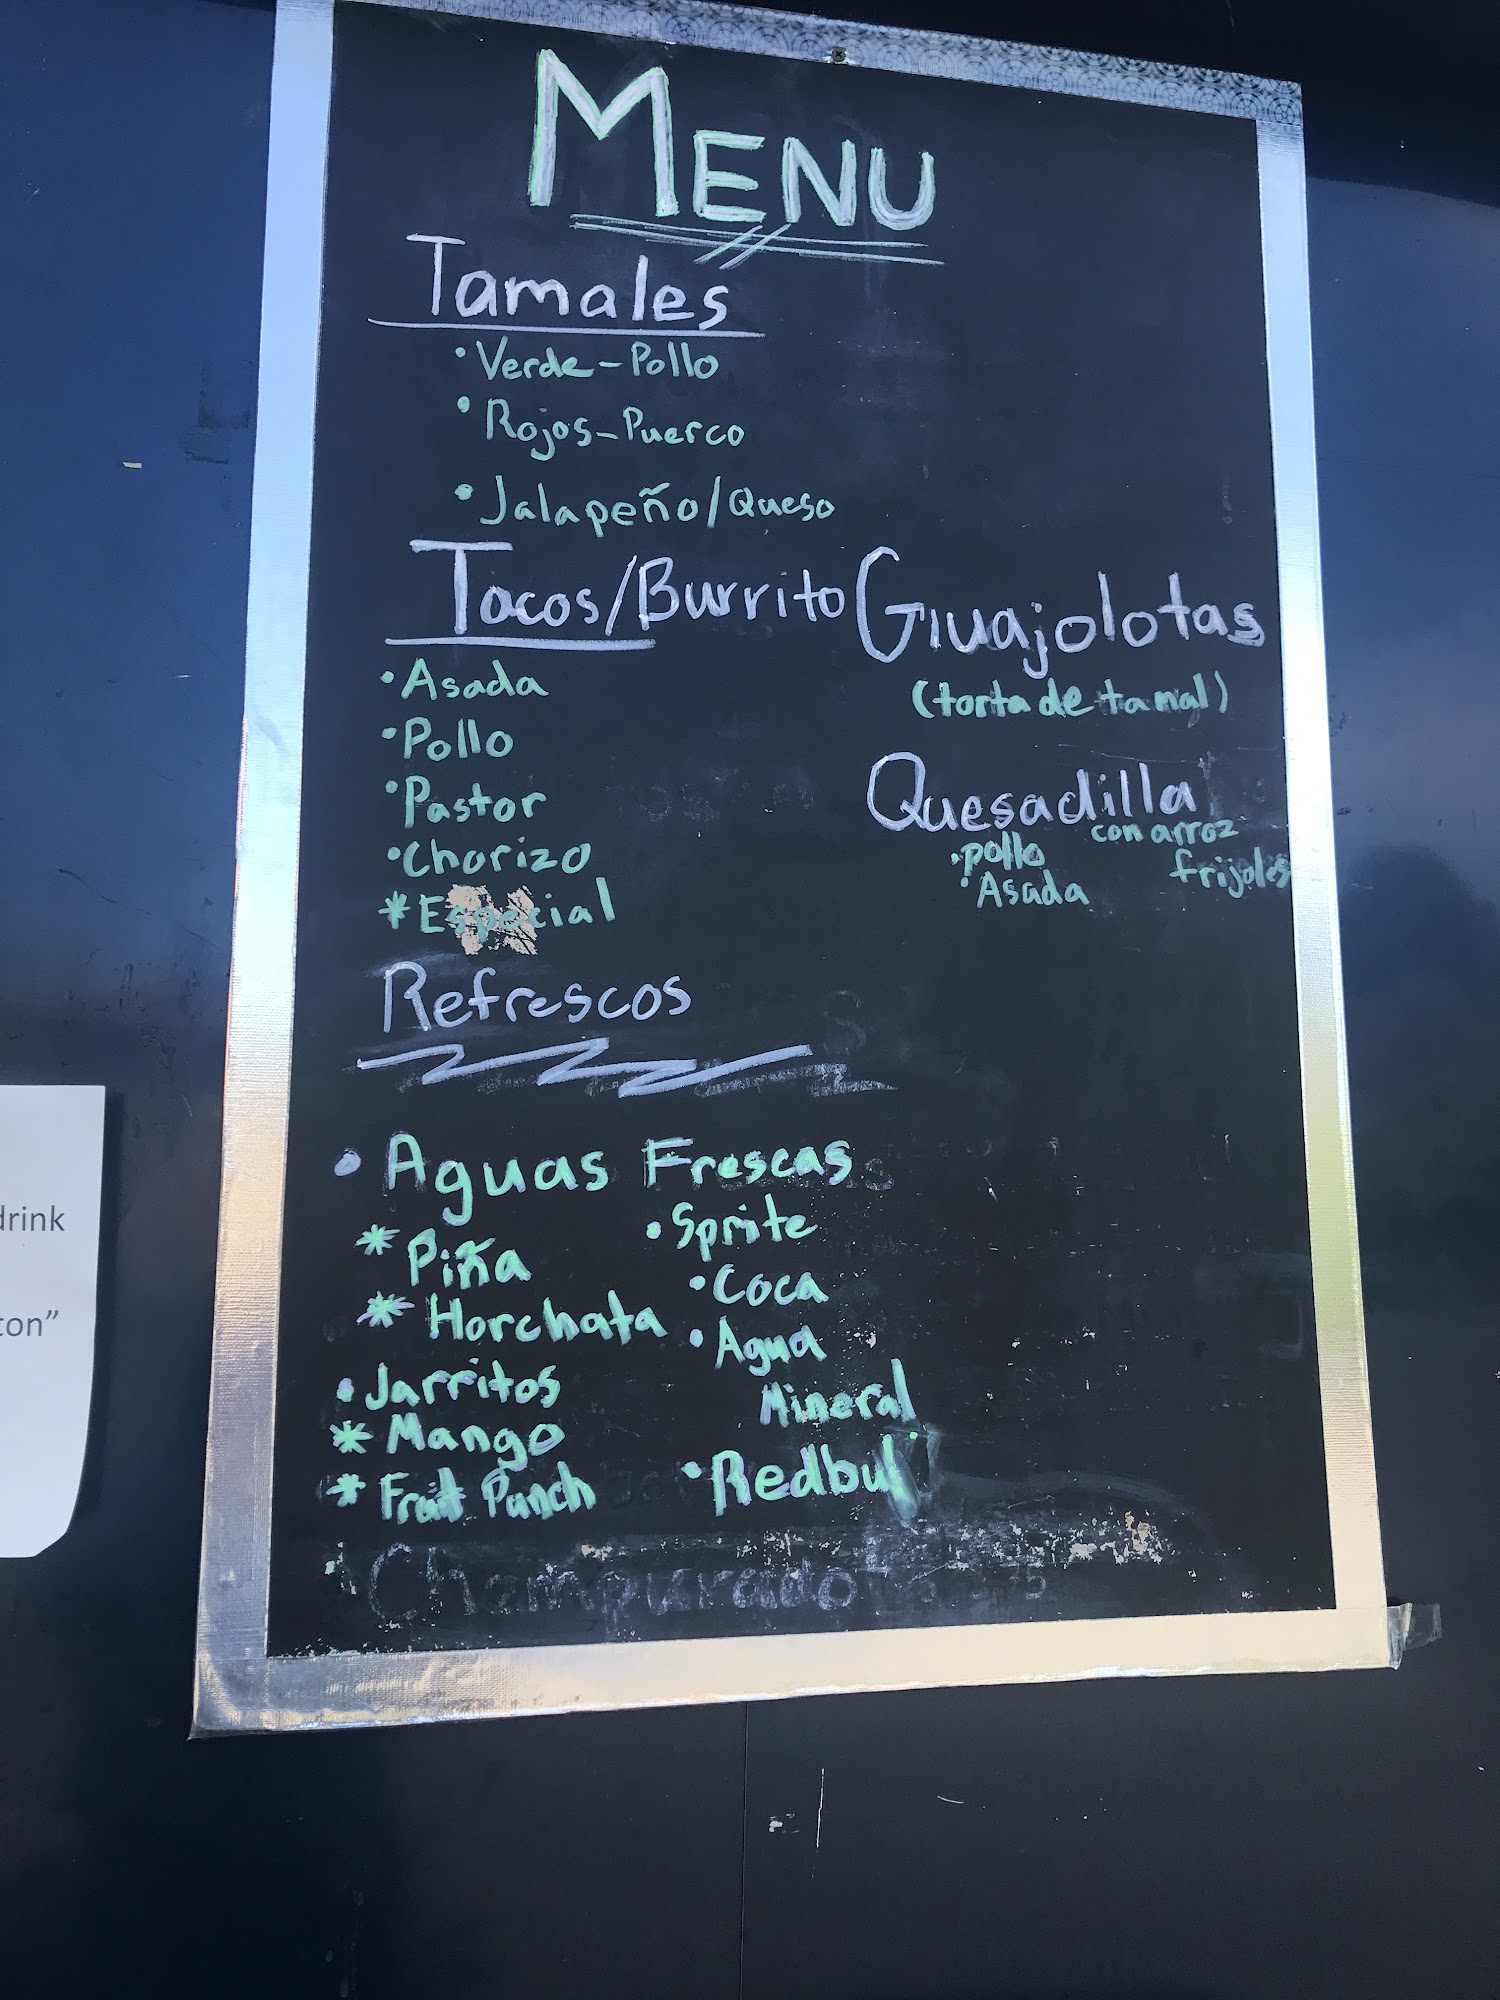 MENU
Tamales
•Verde-Pollo
•Rojos-Puerco
•Jalapeño/Queso
Tacos/Burrito
•Asada
•Pollo
•Pastor
•Chorizo
*Especial
Guajolotas
(torta de tamal)
Quesadilla
con arroz
frijoles
•pollo
•Asada
Refrescos
•Aguas Frescas
*Piña
*Horchata
•Jarritos
*Mango
*Fruit Punch
•Sprite
•Coca
•Agua
Mineral
•Redbul
Champurado
drink